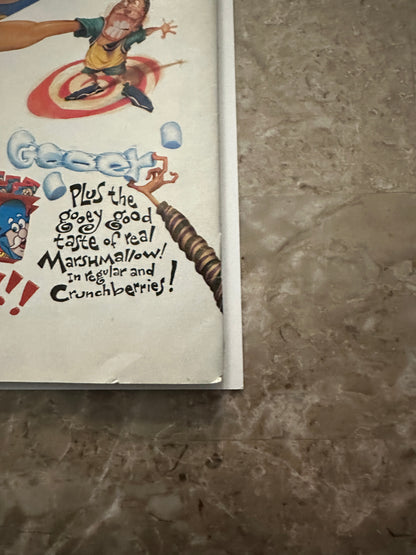 Gooey
Plus the
gooey good
taste of real
Marshmallow!
In regular and
Crunchberries!
!!